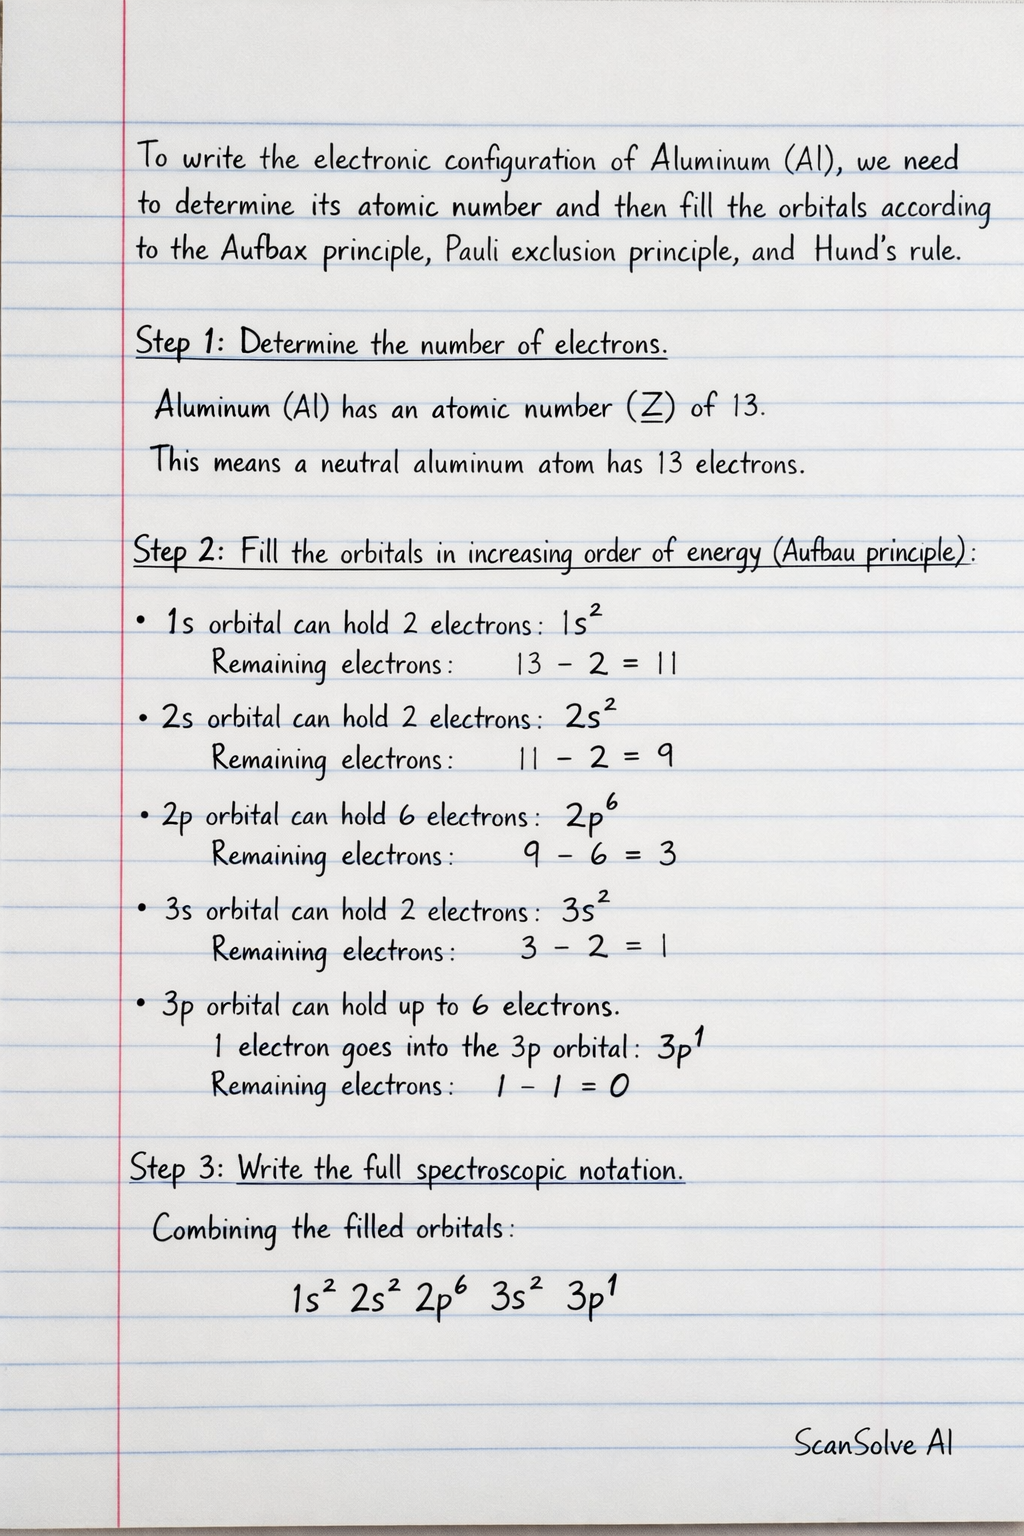 To write the electronic configuration of Aluminum (Al), we need
to determine its atomic number and then fill the orbitals according
to the Aufbax principle, Pauli exclusion principle, and Hund's rule.
Step 1: Determine the number of electrons.
Aluminum (Al) has an atomic number (Z) of 13.
This means a neutral aluminum atom has 13 electrons.
Step 2: Fill the orbitals in increasing order of energy (Aufbau principle):
• 1s orbital can hold 2 electrons: 1s²
Remaining electrons: 13 - 2 = 11
• 2s orbital can hold 2 electrons: 2s²
Remaining electrons: 11 - 2 = 9
• 2p orbital can hold 6 electrons: 2p⁶
Remaining electrons: 9 - 6 = 3
• 3s orbital can hold 2 electrons: 3s²
Remaining electrons: 3 - 2 = 1
• 3p orbital can hold up to 6 electrons.
1 electron goes into the 3p orbital: 3p¹
Remaining electrons: 1 - 1 = 0
Step 3: Write the full spectroscopic notation.
Combining the filled orbitals:
1s² 2s² 2p⁶ 3s² 3p¹
ScanSolve AI